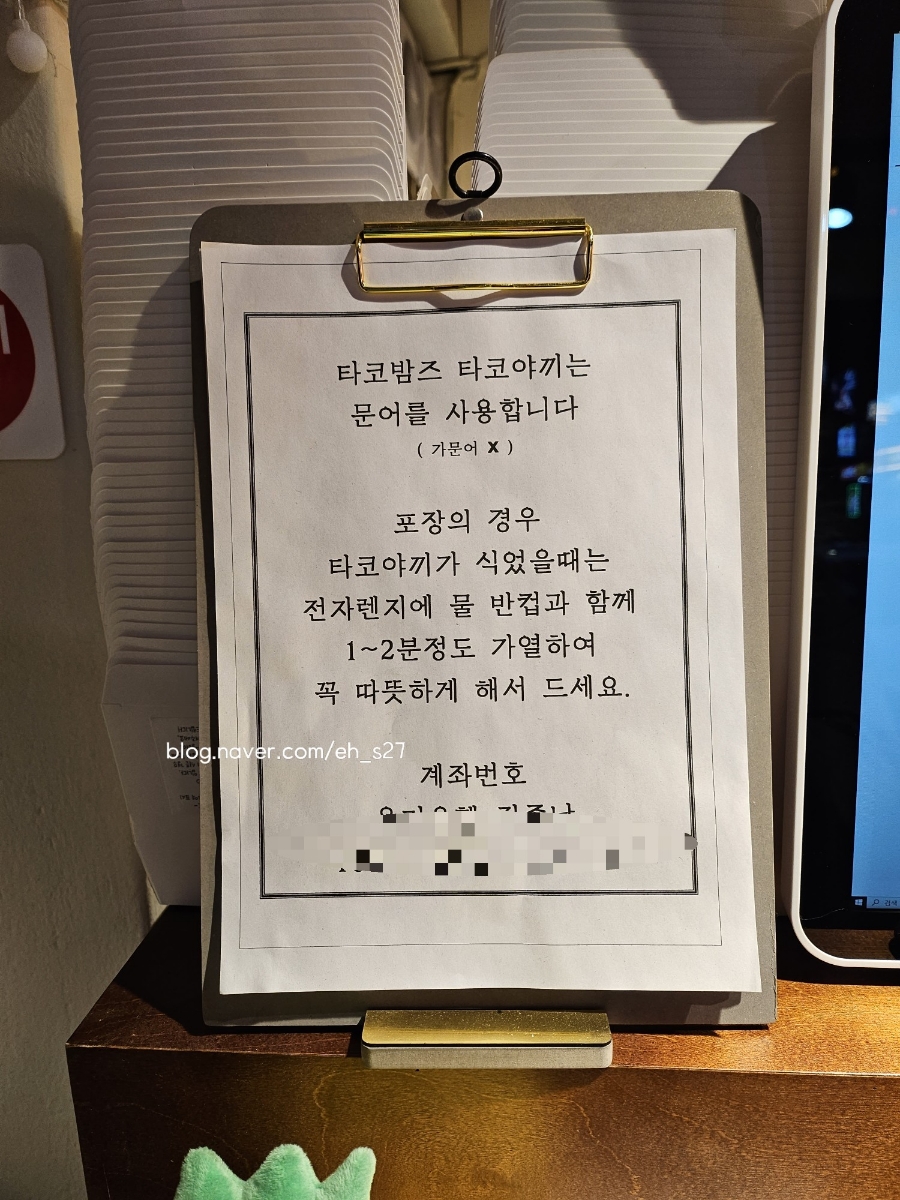 타코밤즈 타코야끼는
문어를 사용합니다
( 가문어 X )
포장의 경우
타코야끼가 식었을때는
전자렌지에 물 반컵과 함께
1~2분정도 가열하여
꼭 따뜻하게 해서 드세요.
blog.naver.com/eh_s27
계좌번호
검색